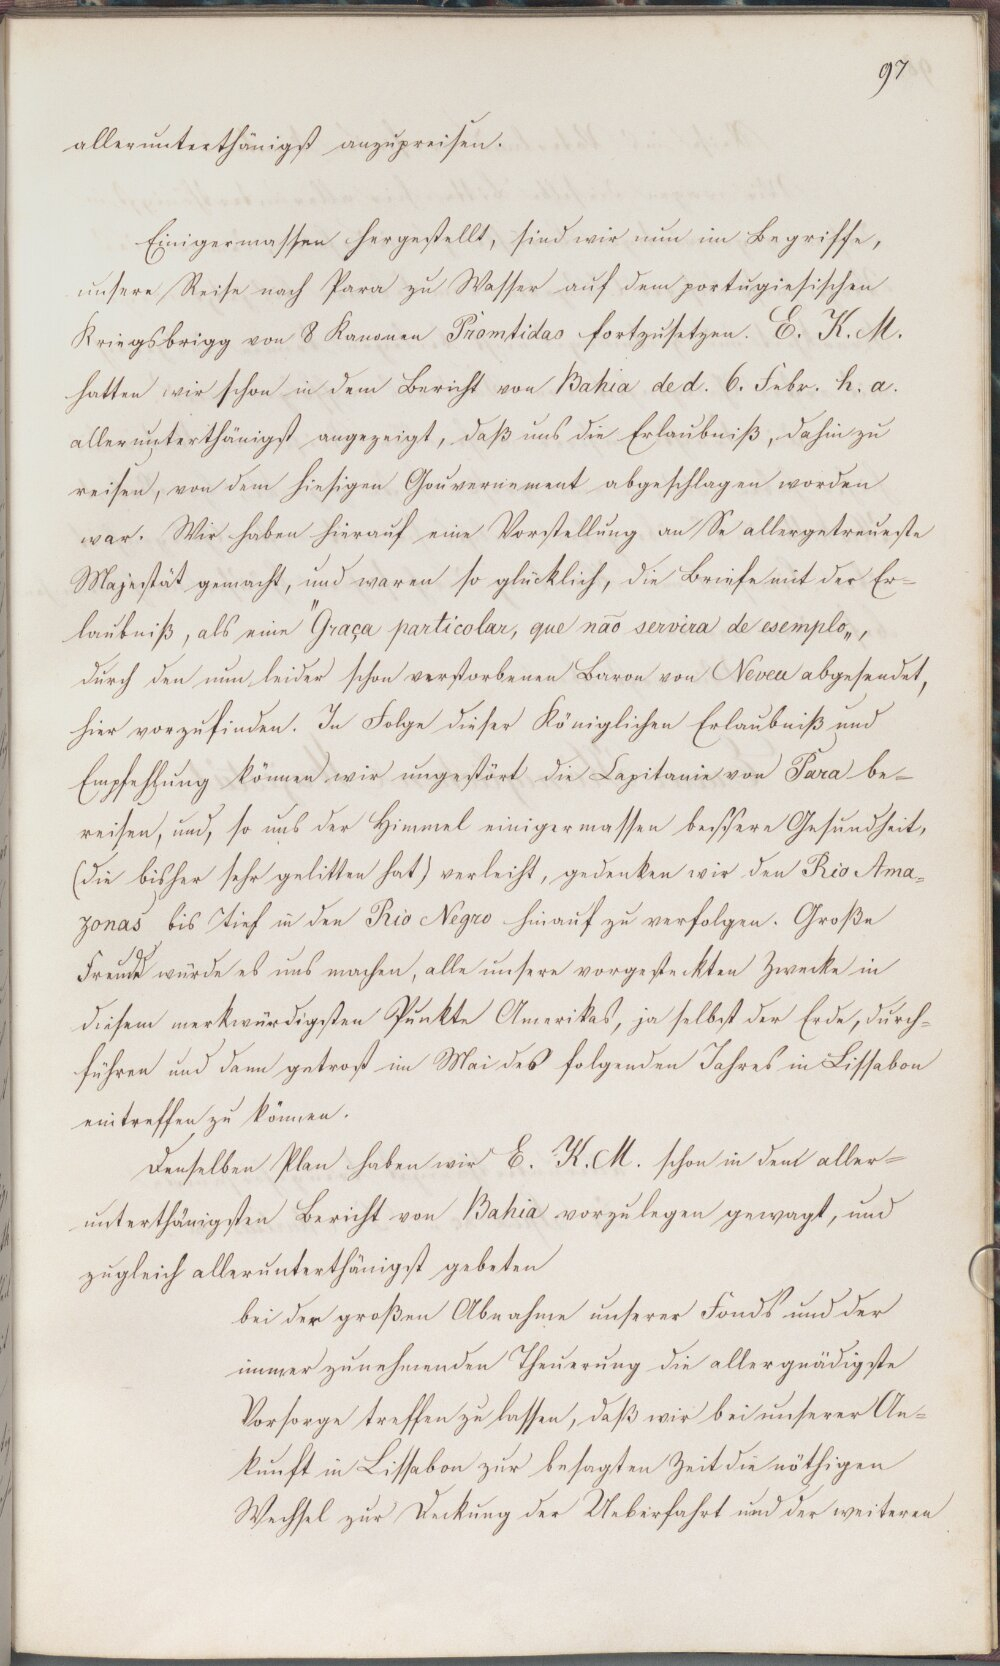 97
allerunterthänigst anzupreisen.
Einigermassen hergestellt, sind wir nun im Begriffe,
unsere Reise nach Para zu Wasser auf dem portugiesischen
Kriegsbrigg von 8 Kanonen Promtidao fortzusetzen. E. K. M.
hatten wir schon in dem Bericht von Bahia de d. 6. Febr. h. a.
allerunterthänigst angezeigt, daß uns die Erlaubniß, dahin zu
reisen, von dem hiesigen Gouvernement abgeschlagen worden
war. Wir haben hierauf eine Vorstellung an Se allergetreueste
Majestät gemacht, und waren so glücklich, die Briefe mit der Er=
laubniß, als eine "Graça particolar, que não servira de esemplo„,
durch den nun leider schon verstorbenen Baron von Neveu abgesendet,
hier vorzufinden. In Folge dieser Königlichen Erlaubniß und
Empfehlung können wir ungestört die Capitanie von Para be=
reisen, und, so uns der Himmel einigermassen bessere Gesundheit,
(die bisher sehr gelitten hat) verleiht, gedenken wir den Rio Ama=
zonas bis tief in den Rio Negro hinauf zu verfolgen. Große
Freude würde es uns machen, alle unsere vorgesteckten Zwecke in
diesem merkwürdigsten Punkte Amerikas, ja selbst der Erde, durch=
führen und dann getrost im Mai des folgenden Jahres in Lissabon
eintreffen zu können.
Denselben Plan haben wir E. K. M. schon in dem aller=
unterthänigsten Bericht von Bahia vorzulegen gewagt, und
zugleich allerunterthänigst gebeten
bei der großen Abnahme unserer Fonds und der
immer zunehmenden Theuerung die allergnädigste
Vorsorge treffen zu lassen, daß wir bei unserer An=
kunft in Lissabon zur besagten Zeit die nöthigen
Wechsel zur Deckung der Ueberfahrt und der weiteren